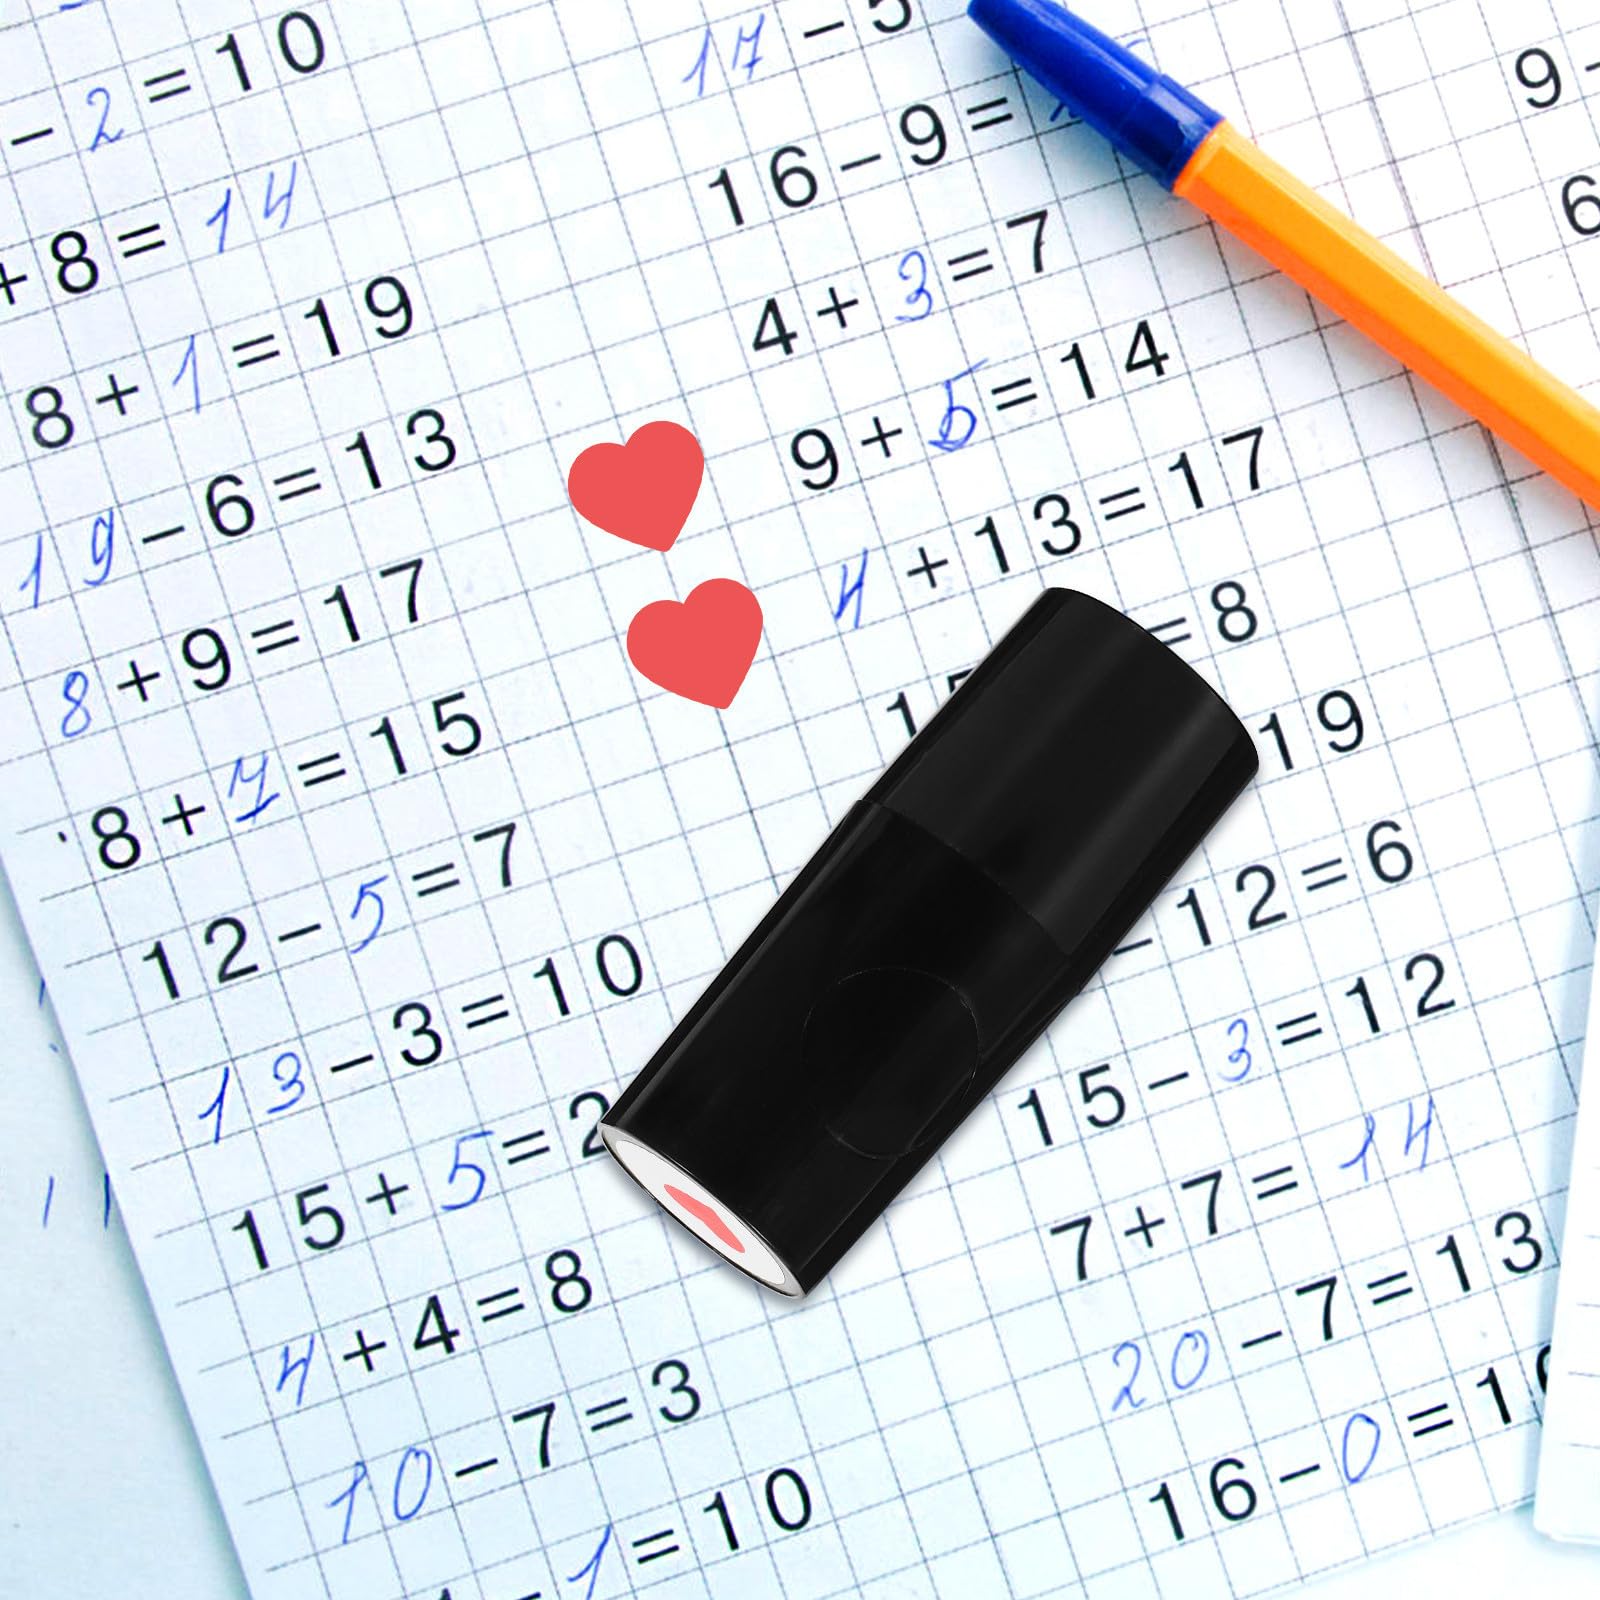 - 2 = 10
+ 8 = 14
8 + 1 = 19
19 - 6 = 13
8 + 9 = 17
8 + 7 = 15
12 - 5 = 7
13 - 3 = 10
15 + 5 = 2
4 + 4 = 8
10 - 7 = 3
- 1 = 10
17 - 5
16 - 9 =
4 + 3 = 7
9 + 5 = 14
4 + 13 = 17
15 = 8
19
- 12 = 6
15 - 3 = 12
7 + 7 = 14
20 - 7 = 13
16 - 0 = 16
9 -
6